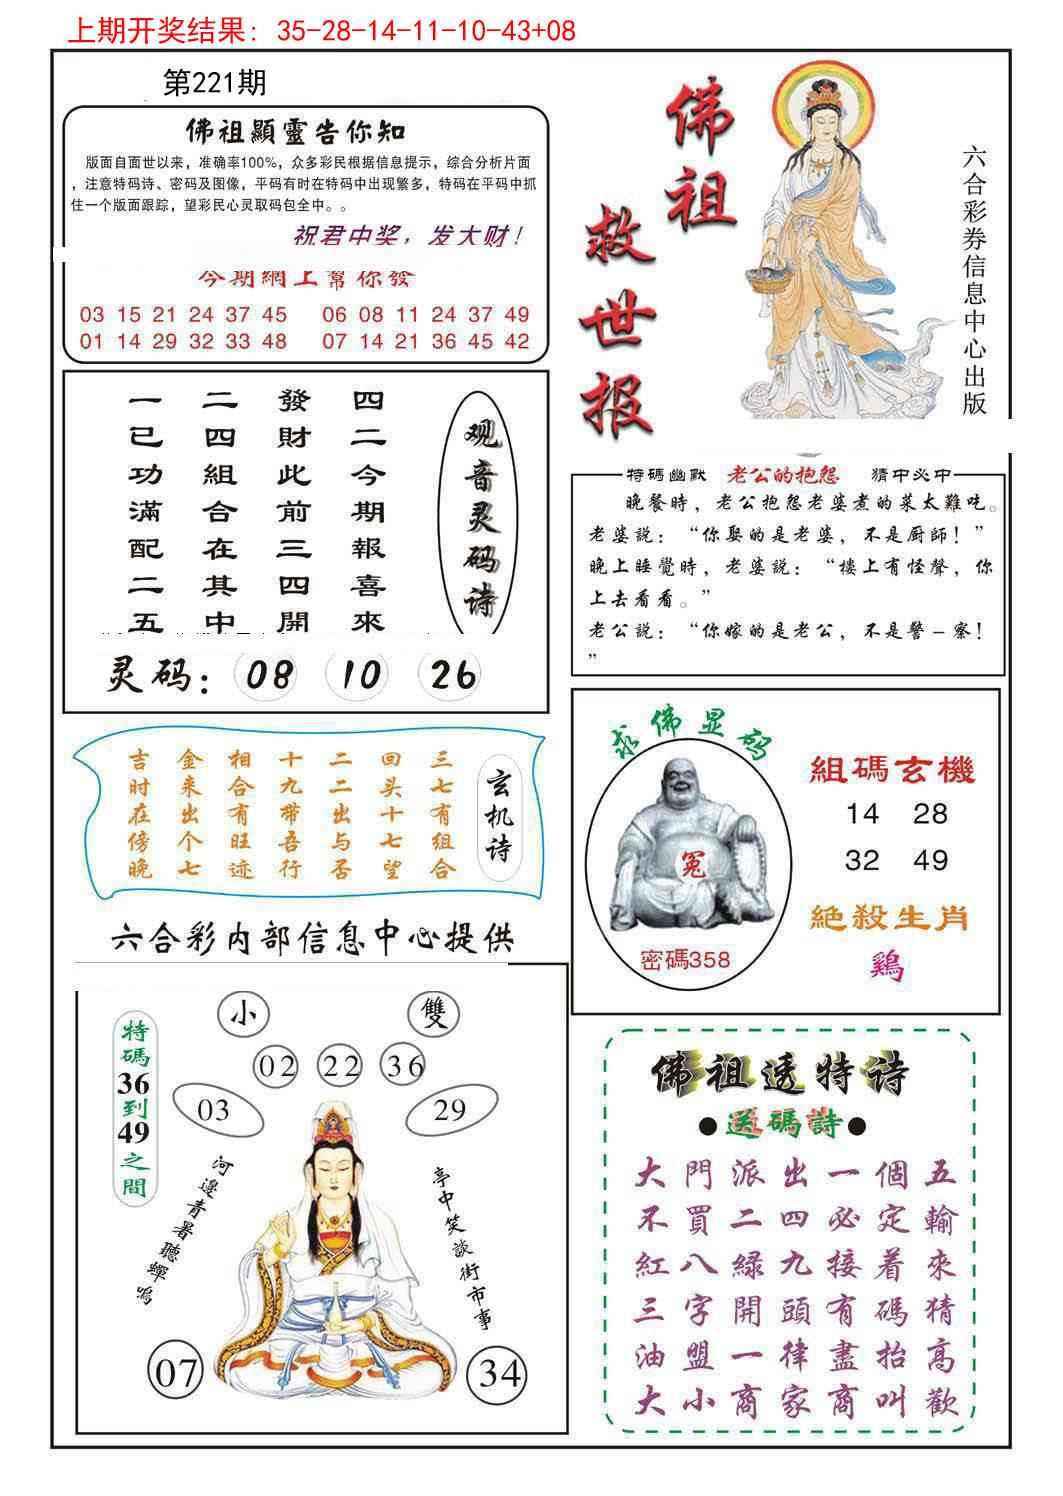 上期开奖结果: 35-28-14-11-10-43+08
第221期
佛祖顯靈告你知
版面自面世以来，准确率100%，众多彩民根据信息提示，综合分析片面
，注意特码诗、密码及图像，平码有时在特码中出现繁多，特码在平码中抓
住一个版面跟踪，望彩民心灵取码包全中。。
祝君中奖，发大财！
今期網上幫你發
03 15 21 24 37 45 06 08 11 24 37 49
01 14 29 32 33 48 07 14 21 36 45 42
佛祖
救世报
六合彩券信息中心出版
观音灵码诗
四二今期報喜來
發財此前三四開
二四組合在其中
一已功滿配二五
灵码：08 10 26
特碼幽默 老公的抱怨 猜中必中
晚餐時，老公抱怨老婆煮的菜太難吃。
老婆説：“你娶的是老婆，不是厨師！”
晚上睡覺時，老婆説：“樓上有怪聲，你
上去看看。”
老公説：“你嫁的是老公，不是警－察！
”
玄机诗
三七有组合
回头十七望
二二出与否
十九带吾行
相合有旺迹
金来出个七
吉时在傍晚
六合彩内部信息中心提供
求佛显码
冤
密碼358
組碼玄機
14 28
32 49
絕殺生肖
鷄
特碼36到49之間
小 雙
02 22 36
03 29
河邊青暑聽蟬鳴
亭中笑談街市事
07 34
佛祖透特诗
●送碼詩●
大門派出一個五
不買二四必定輸
紅八緑九接着來
三字開頭有碼猜
油盟一律盡抬高
大小商家商叫歡